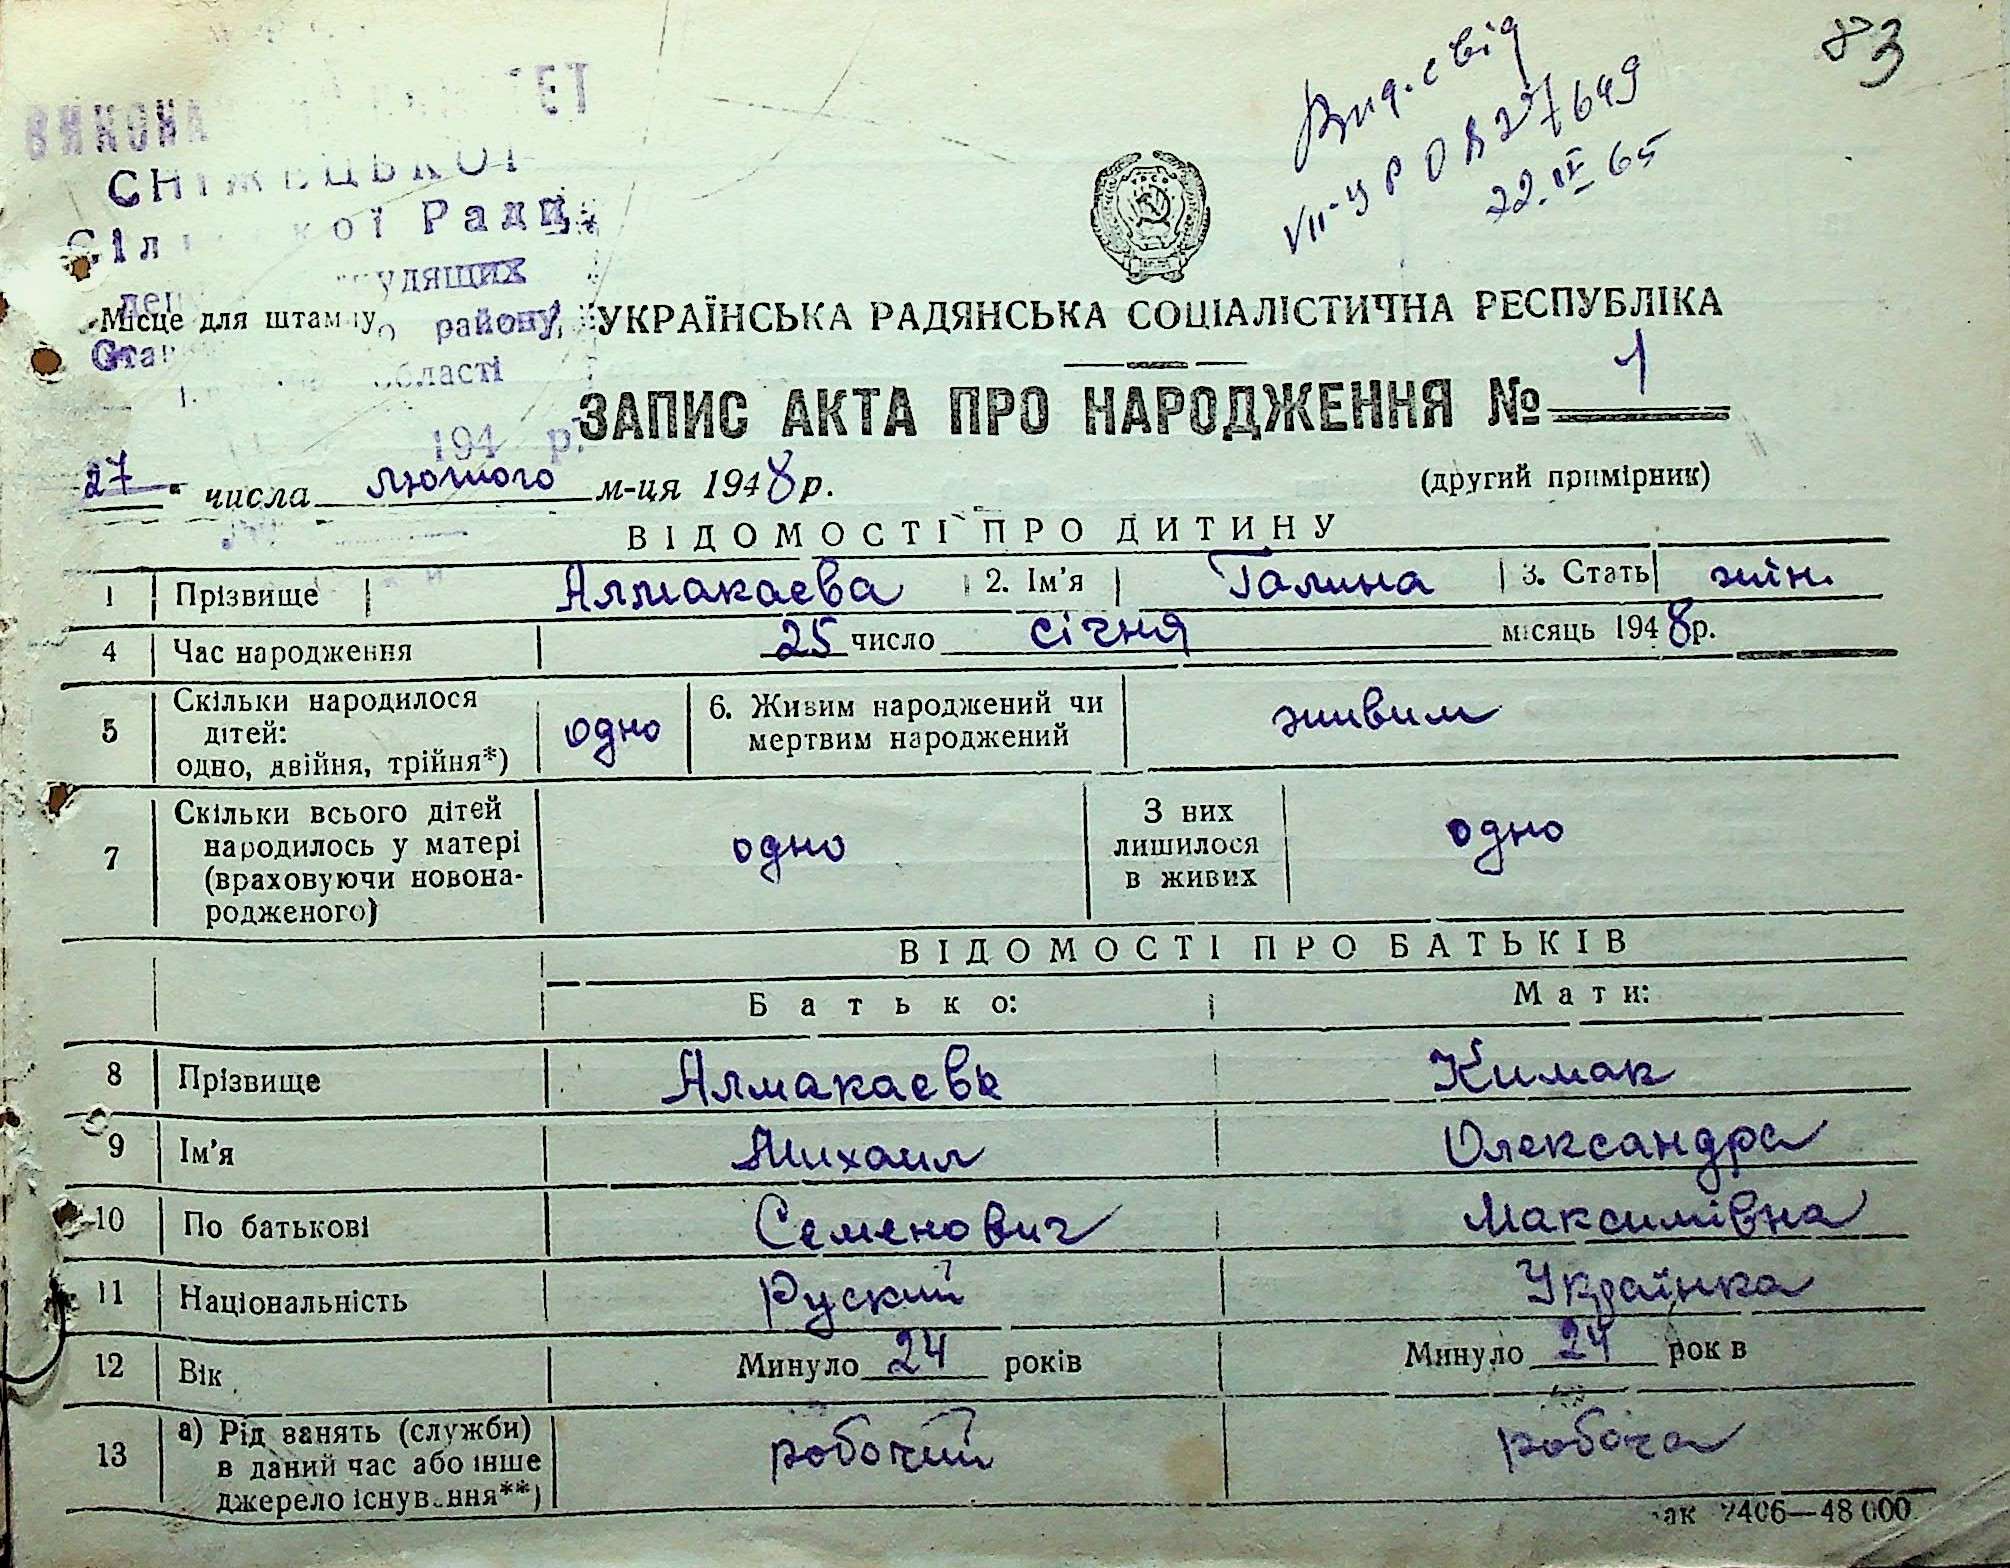 83
Вид. свід
VII-УР О А 227649
22.IX 65
СНІЖЕЦЬКОЇ
Ради
району,
області
194 р.
Місце для штампу
УКРАЇНСЬКА РАДЯНСЬКА СОЦІАЛІСТИЧНА РЕСПУБЛІКА
ЗАПИС АКТА ПРО НАРОДЖЕННЯ № 1
27 числа лютого м-ця 1948 р.
(другий примірник)
ВІДОМОСТІ ПРО ДИТИНУ
1 Прізвище Алмакаєва 2. Ім'я Галина 3. Стать жін.
4 Час народження 25 число січня місяць 1948 р.
5 Скільки народилося дітей: одно, двійня, трійня*) одно 6. Живим народжений чи мертвим народжений живим
7 Скільки всього дітей народилось у матері (враховуючи новонародженого) одно З них лишилося в живих одно
ВІДОМОСТІ ПРО БАТЬКІВ
Батько: Мати:
8 Прізвище Алмакаєв Кимак
9 Ім'я Михаил Олександра
10 По батькові Семенович Максимівна
11 Національність Руский Українка
12 Вік Минуло 24 років Минуло 24 рок в
13 а) Рід занять (служби) в даний час або інше джерело існування**) робочий робоча
2406—48 000